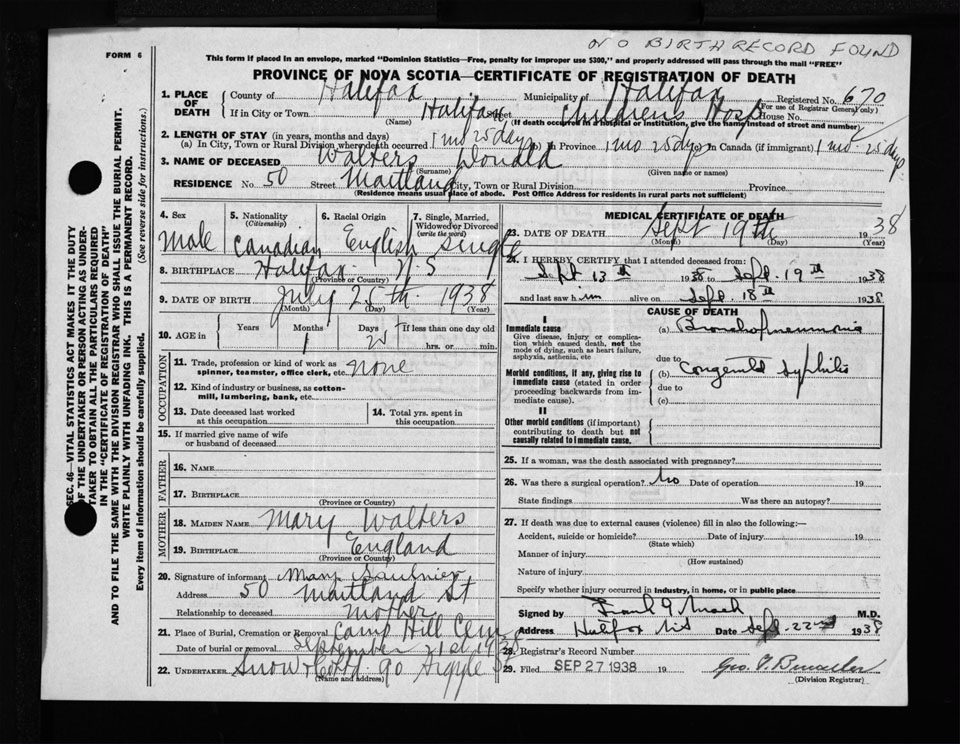 NO BIRTH RECORD FOUND
FORM 6
This form if placed in an envelope, marked "Dominion Statistics—Free, penalty for improper use $300," and properly addressed will pass through the mail "FREE"
PROVINCE OF NOVA SCOTIA—CERTIFICATE OF REGISTRATION OF DEATH
1. PLACE OF DEATH County of Halifax Municipality of Halifax Registered No. 670
(For use of Registrar General only)
If in City or Town Halifax Children's Hosp House No.
(Name) (If death occurred in a hospital or institution, give the name instead of street and number)
2. LENGTH OF STAY (in years, months and days)
(a) In City, Town or Rural Division where death occurred 1 mo 25 days (b) In Province 1 mo 25 dys (c) In Canada (if immigrant) 1 mo. 25 dys.
3. NAME OF DECEASED Walters Donald
(Surname) (Given name or names)
RESIDENCE No. 50 Street Maitland City, Town or Rural Division Province
(Residence means usual place of abode. Post Office Address for residents in rural parts not sufficient)
4. Sex Male
5. Nationality (Citizenship) Canadian
6. Racial Origin English
7. Single, Married, Widowed or Divorced (write the word) Single
8. BIRTHPLACE Halifax N.S
(Province or Country)
9. DATE OF BIRTH July 25th 1938
(Month) (Day) (Year)
10. AGE in Years Months Days If less than one day old
1 25 hrs. or min.
OCCUPATION
11. Trade, profession or kind of work as spinner, teamster, office clerk, etc. none
12. Kind of industry or business, as cotton-mill, lumbering, bank, etc.
13. Date deceased last worked at this occupation
14. Total yrs. spent in this occupation
15. If married give name of wife or husband of deceased
FATHER
16. NAME
17. BIRTHPLACE
(Province or Country)
MOTHER
18. MAIDEN NAME Mary Walters
19. BIRTHPLACE England
(Province or Country)
20. Signature of informant Mary Saulnier
Address 50 Maitland St
Relationship to deceased Mother
21. Place of Burial, Cremation or Removal Camp Hill Cem
Date of burial or removal September 21st 1938
22. UNDERTAKER Snow & Co Ltd. 90 Argyle St
(Name and address)
MEDICAL CERTIFICATE OF DEATH
23. DATE OF DEATH Sept 19th 1938
(Month) (Day) (Year)
24. I HEREBY CERTIFY that I attended deceased from:
Sept 13th 1938 to Sept. 19th 1938
and last saw him alive on Sept. 18th 1938
CAUSE OF DEATH
I
Immediate cause
Give disease, injury or complication which caused death, not the mode of dying, such as heart failure, asphyxia, asthenia, etc
(a) Bronchopneumonia
due to
Morbid conditions, if any, giving rise to immediate cause (stated in order proceeding backwards from immediate cause).
(b) Congenital syphilis
due to
(c)
II
Other morbid conditions (if important) contributing to death but not causally related to immediate cause.
25. If a woman, was the death associated with pregnancy?
26. Was there a surgical operation? No Date of operation 19
State findings Was there an autopsy?
27. If death was due to external causes (violence) fill in also the following:—
Accident, suicide or homicide? Date of injury 19
(State which)
Manner of injury
(How sustained)
Nature of injury
Specify whether injury occurred in industry, in home, or in public place
Signed by Frank G. Mack M.D.
Address Halifax N.S Date Sept. 22nd 1938
28. Registrar's Record Number
29. Filed SEP 27 1938 19
(Division Registrar)
SEC. 46—VITAL STATISTICS ACT MAKES IT THE DUTY
OF THE UNDERTAKER OR PERSON ACTING AS UNDERTAKER TO OBTAIN ALL THE PARTICULARS REQUIRED
IN THE "CERTIFICATE OF REGISTRATION OF DEATH"
AND TO FILE THE SAME WITH THE DIVISION REGISTRAR WHO SHALL ISSUE THE BURIAL PERMIT.
WRITE PLAINLY WITH UNFADING INK. THIS IS A PERMANENT RECORD.
Every item of information should be carefully supplied. (See reverse side for instructions.)